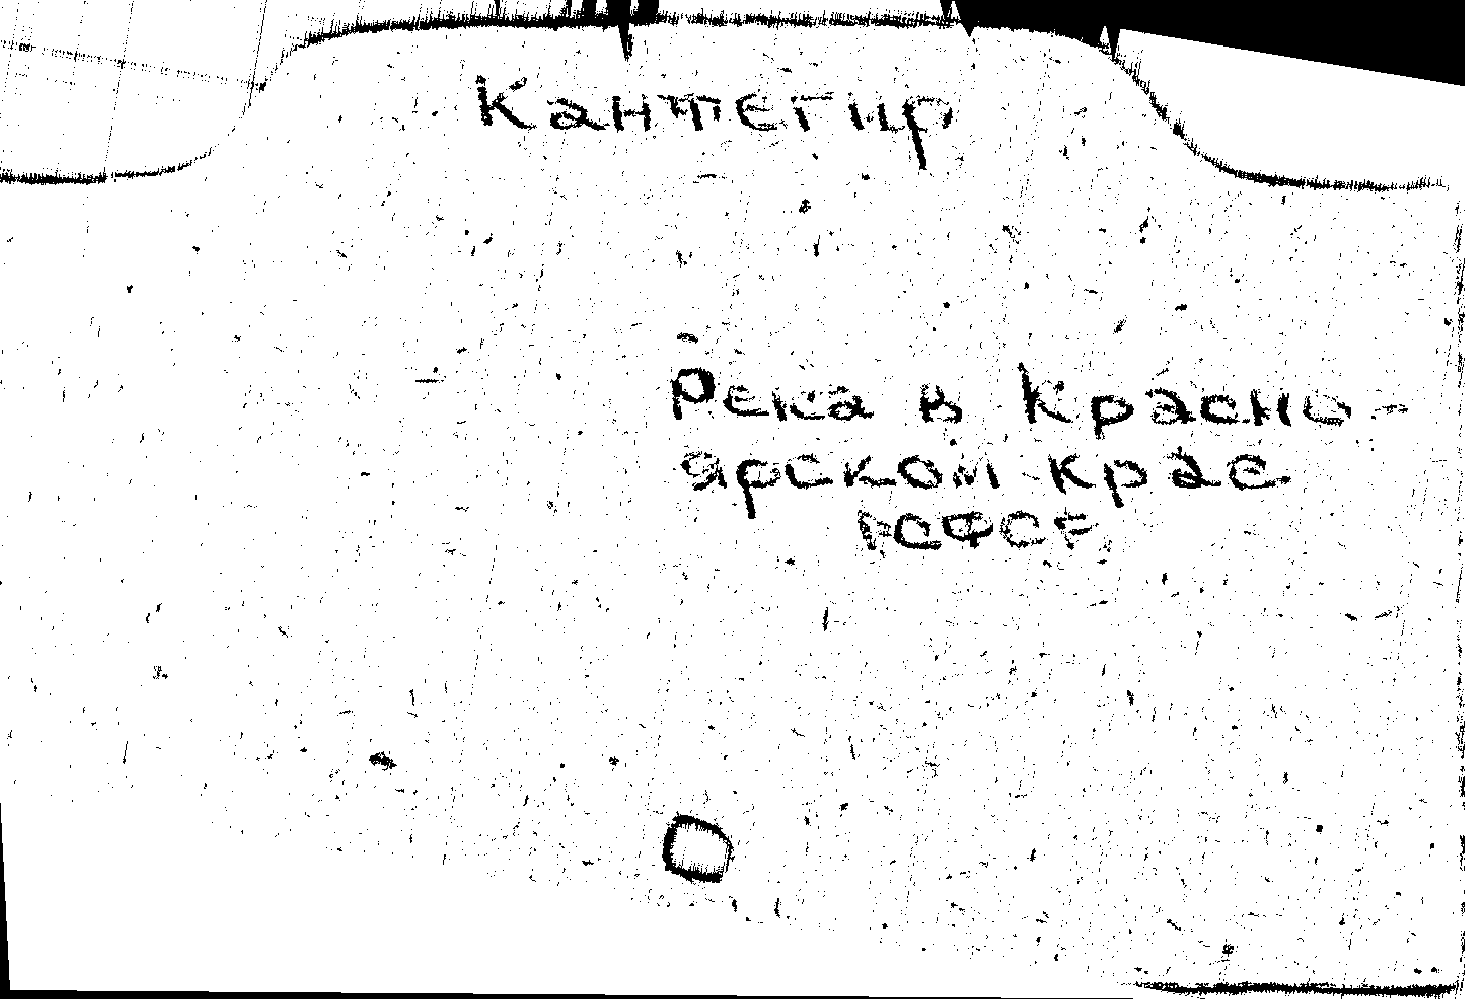 Кантегир
Река в Красно-
ярском крае
РСФСР